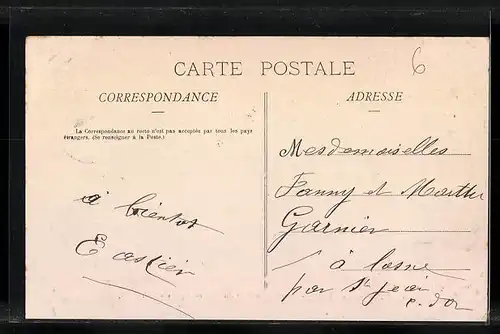 CARTE POSTALE
6
CORRESPONDANCE
La Correspondance au recto n'est pas acceptée par tous les pays
étrangers. (Se renseigner à la Poste.)
à bientôt
E
ADRESSE
Mesdemoiselles
Fanny et Marthe
Garnier
à Losne
par St Jean
C. d'Or